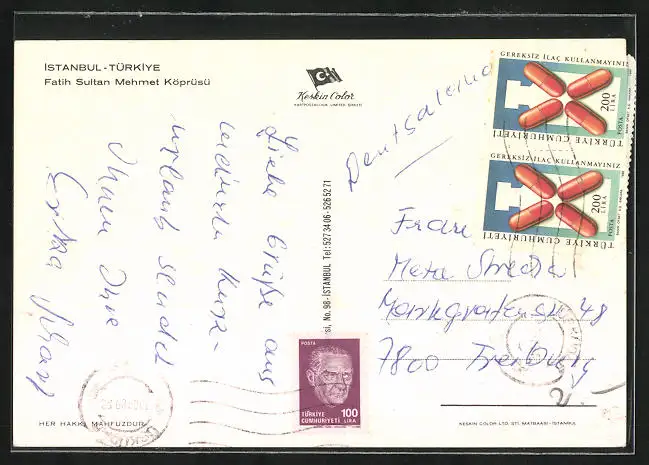 İSTANBUL - TÜRKİYE
Fatih Sultan Mehmet Köprüsü
Keskin Color
KARTPOSTALCILIK LIMITED ŞİRKETİ
Liebe Grüße aus
Kurz-
urlaub sendet
Ihnen Ihre
Erika
No. 98 - İSTANBUL Tel: 5273406 - 5265271
GEREKSİZ İLAÇ KULLANMAYINIZ
200
LİRA
POSTA
TÜRKİYE CUMHURİYETİ
GEREKSİZ İLAÇ KULLANMAYINIZ
200
LİRA
POSTA
TÜRKİYE CUMHURİYETİ
Frau
Meta
Markgrafenstr 48
7800 Freiburg
POSTA
TÜRKİYE
CUMHURİYETİ
100
LİRA
HER HAKKI MAHFUZDUR
KESKİN COLOR LTD. ŞTİ. MATBAASI - İSTANBUL